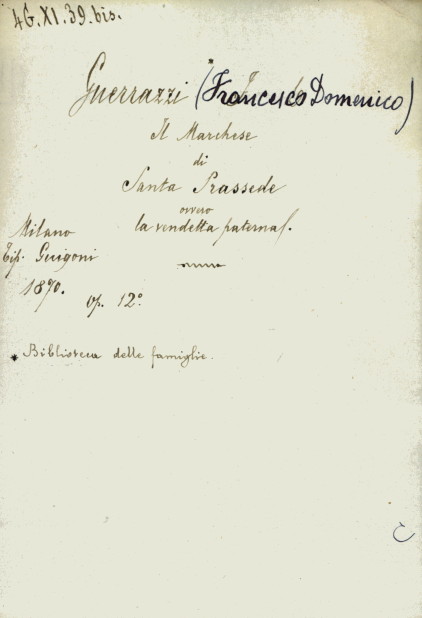 4G.XI.39.bis.
Guerrazzi (Francesco Domenico)
Il Marchese
di
Santa Prassede
ovvero
la vendetta paterna.
Milano
Tip. Guigoni
1870. op. 12°
* Biblioteca delle famiglie.
C